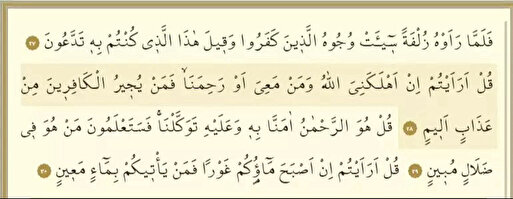 فَلَمَّا رَاَوْهُ زُلْفَةً س۪ٓيـَٔتْ وُجُوهُ الَّذ۪ينَ كَفَرُوا وَق۪يلَ هٰذَا الَّذ۪ي كُنْتُمْ بِه۪ تَدَّعُونَ ﴿٢٧﴾
قُلْ اَرَاَيْتُمْ اِنْ اَهْلَكَنِيَ اللّٰهُ وَمَنْ مَعِيَ اَوْ رَحِمَنَاۙ فَمَنْ يُج۪يرُ الْكَافِر۪ينَ مِنْ
عَذَابٍ اَل۪يمٍ ﴿٢٨﴾ قُلْ هُوَ الرَّحْمٰنُ اٰمَنَّا بِه۪ وَعَلَيْهِ تَوَكَّلْنَاۚ فَسَتَعْلَمُونَ مَنْ هُوَ ف۪ي
ضَلَالٍ مُب۪ينٍ ﴿٢٩﴾ قُلْ اَرَاَيْتُمْ اِنْ اَصْبَحَ مَٓاؤُ۬كُمْ غَوْرًا فَمَنْ يَأْت۪يكُمْ بِمَٓاءٍ مَع۪ينٍ ﴿٣٠﴾